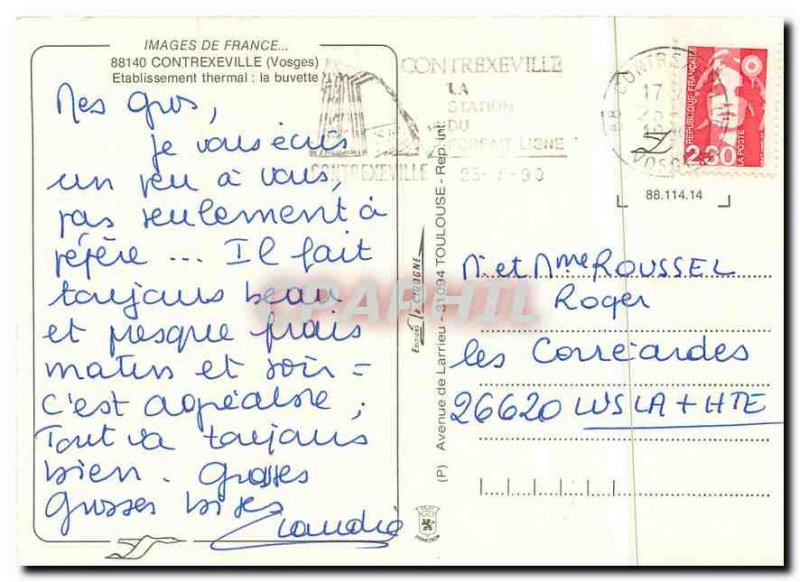 IMAGES DE FRANCE...
88140 CONTREXEVILLE (Vosges)
Etablissement thermal : la buvette
Mes gros,
je vous écris
un peu à vous,
pas seulement à
pépère ... Il fait
toujours beau
et presque frais
matin et soir =
c'est agréable ;
Tout va toujours
bien. Grosses
Grosses bises
Claudie
CONTREXEVILLE
LA
STATION
DU
FORFAIT LIGNE
CONTREXEVILLE
17
VOSGES
REPUBLIQUE FRANÇAISE
2,30
LA POSTE
88.114.14
Editions la CIGOGNE
(P) Avenue de Larrieu - 31094 TOULOUSE - Rep. int.
Mr et Mme ROUSSEL
Roger
les Corréardes
26620 LUS LA + HTE
CPAPHIL